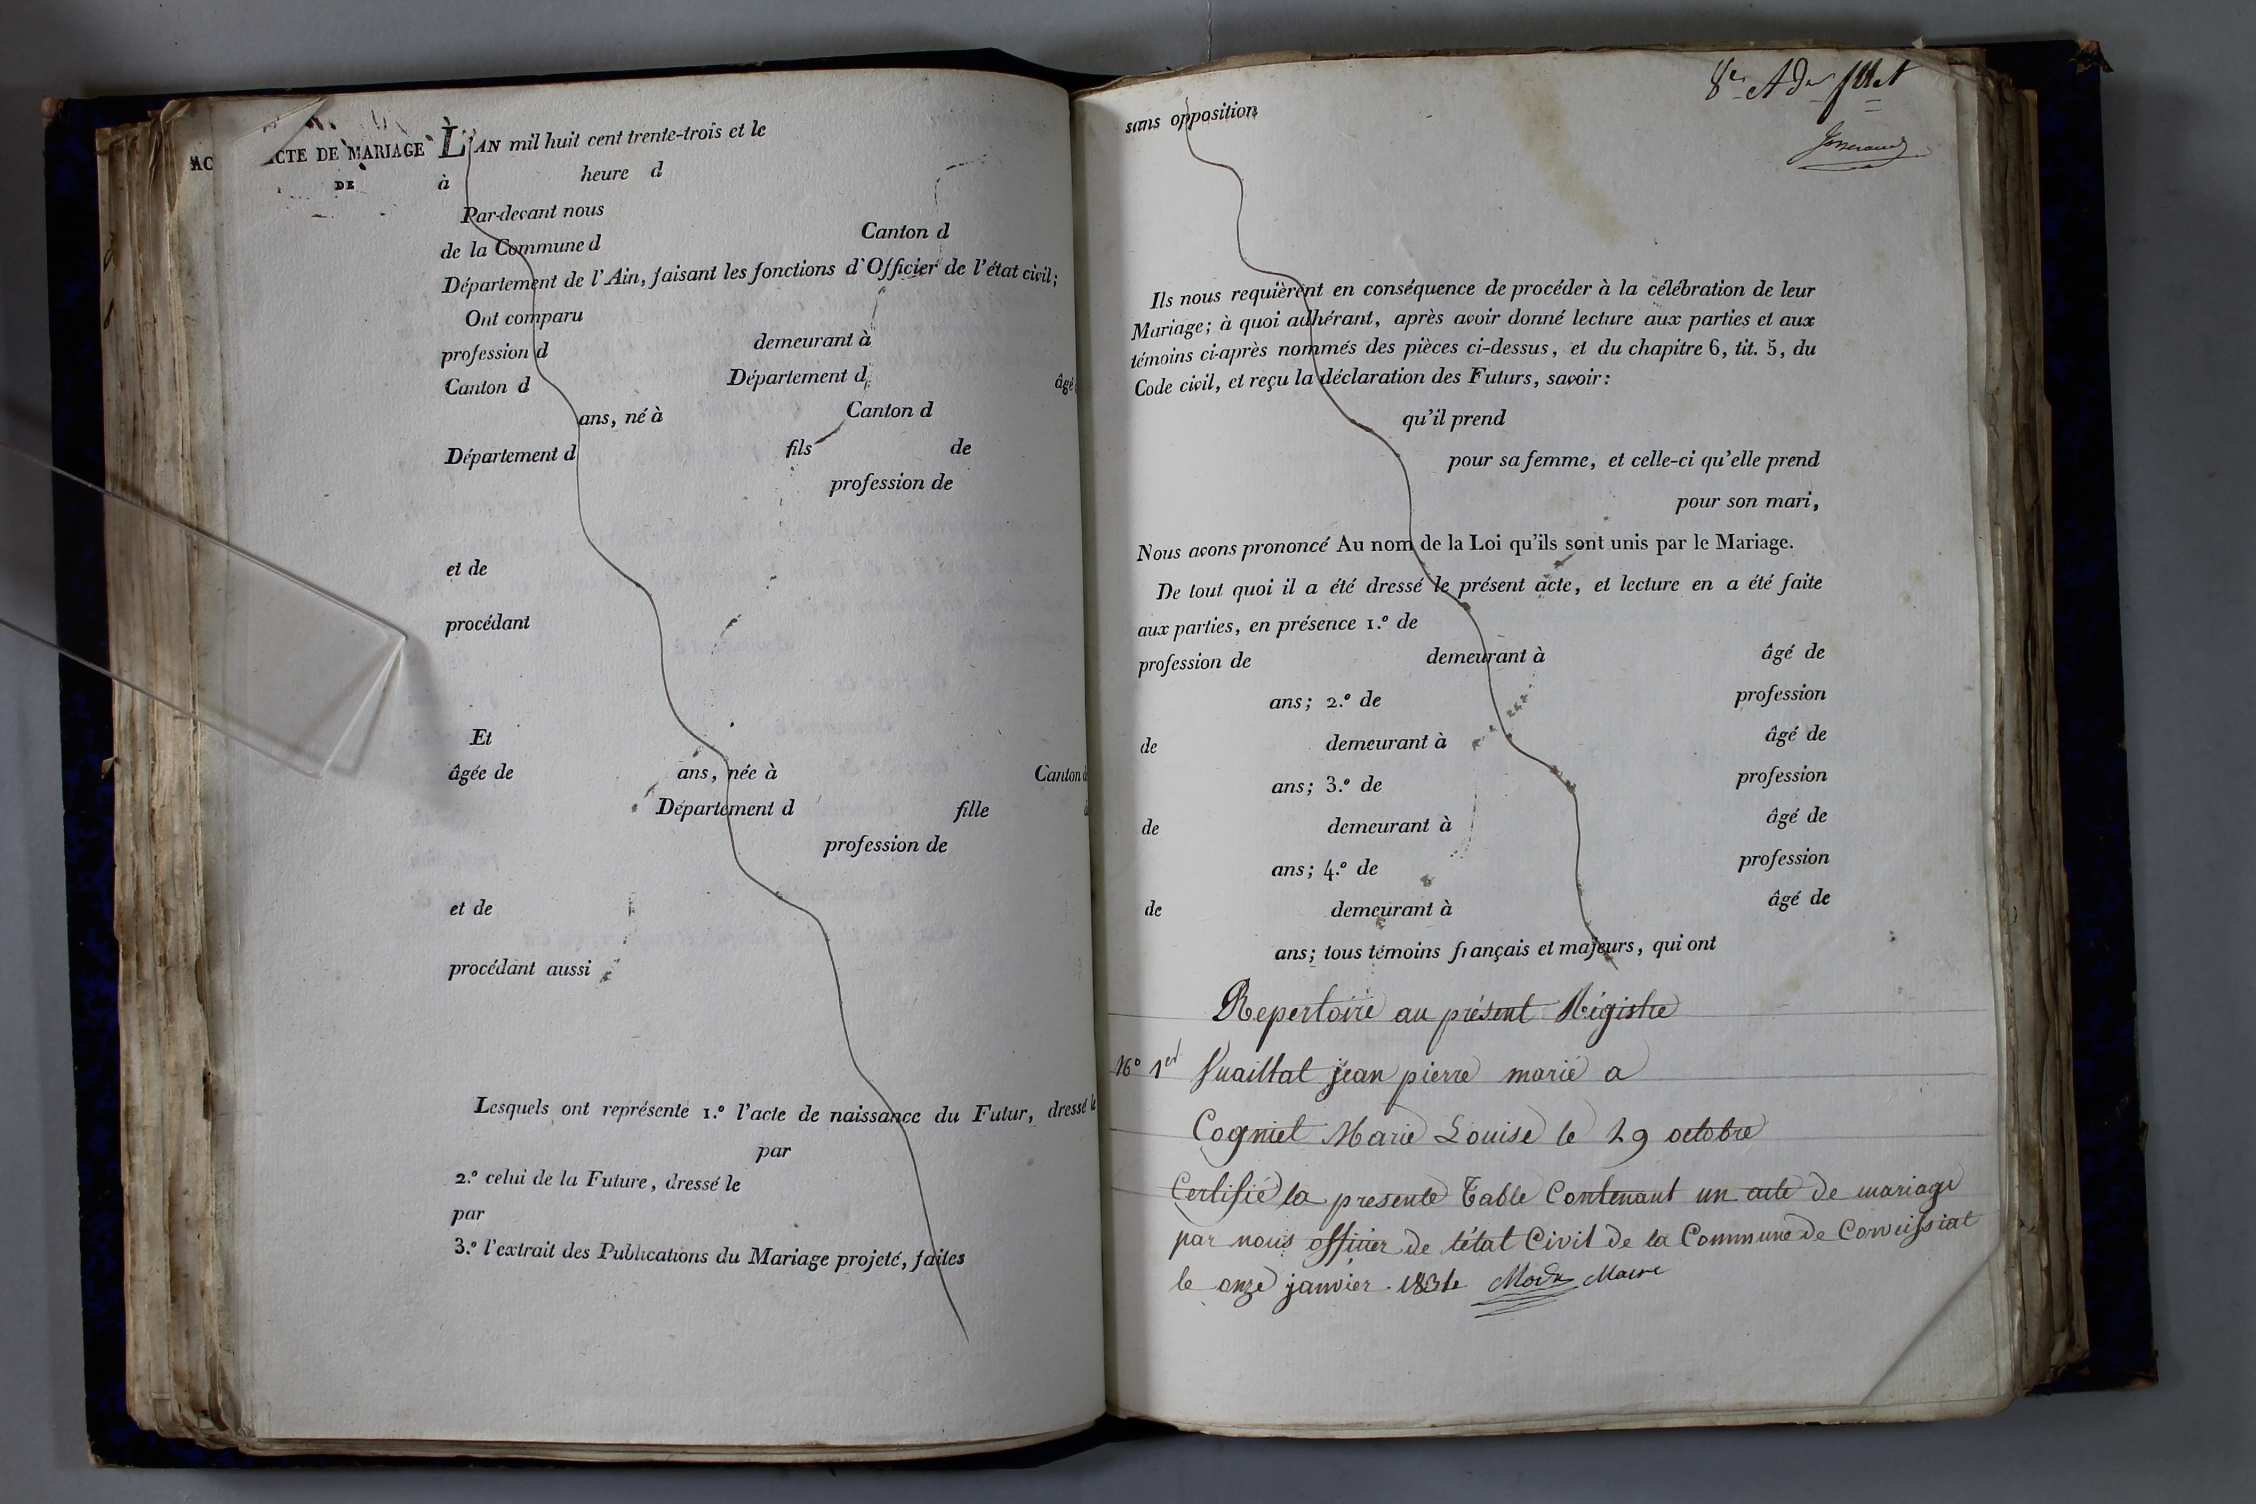 ACTE DE MARIAGE
DE
L'AN mil huit cent trente-trois et le
à heure d
Par-devant nous
de la Commune d Canton d
Département de l'Ain, faisant les fonctions d'Officier de l'état civil;
Ont comparu
profession d demeurant à
Canton d Département d âgé
ans, né à Canton d
Département d fils de
profession de
et de
procédant
Et
âgée de ans, née à Canton d
Département d fille
profession de
et de
procédant aussi
Lesquels ont représenté 1.º l'acte de naissance du Futur, dressé le
par
2.º celui de la Future, dressé le
par
3.º l'extrait des Publications du Mariage projeté, faites
8e
sans opposition
Ils nous requièrent en conséquence de procéder à la célébration de leur
Mariage; à quoi adhérant, après avoir donné lecture aux parties et aux
témoins ci-après nommés des pièces ci-dessus, et du chapitre 6, tit. 5, du
Code civil, et reçu la déclaration des Futurs, savoir:
qu'il prend
pour sa femme, et celle-ci qu'elle prend
pour son mari,
Nous avons prononcé Au nom de la Loi qu'ils sont unis par le Mariage.
De tout quoi il a été dressé le présent acte, et lecture en a été faite
aux parties, en présence 1.º de
profession de demeurant à âgé de
ans; 2.º de profession
de demeurant à âgé de
ans; 3.º de profession
de demeurant à âgé de
ans; 4.º de profession
de demeurant à âgé de
ans; tous témoins français et majeurs, qui ont
Repertoire au présent Régistre
Nº 1er Vuaillat jean pierre marié a
Cogniet Marie Louise le 29 octobre
Certifié la presente Table Contenant un acte de mariage
par nous officier de l'état Civil de la Commune de Corveissiat
le onze janvier 1834 Maire